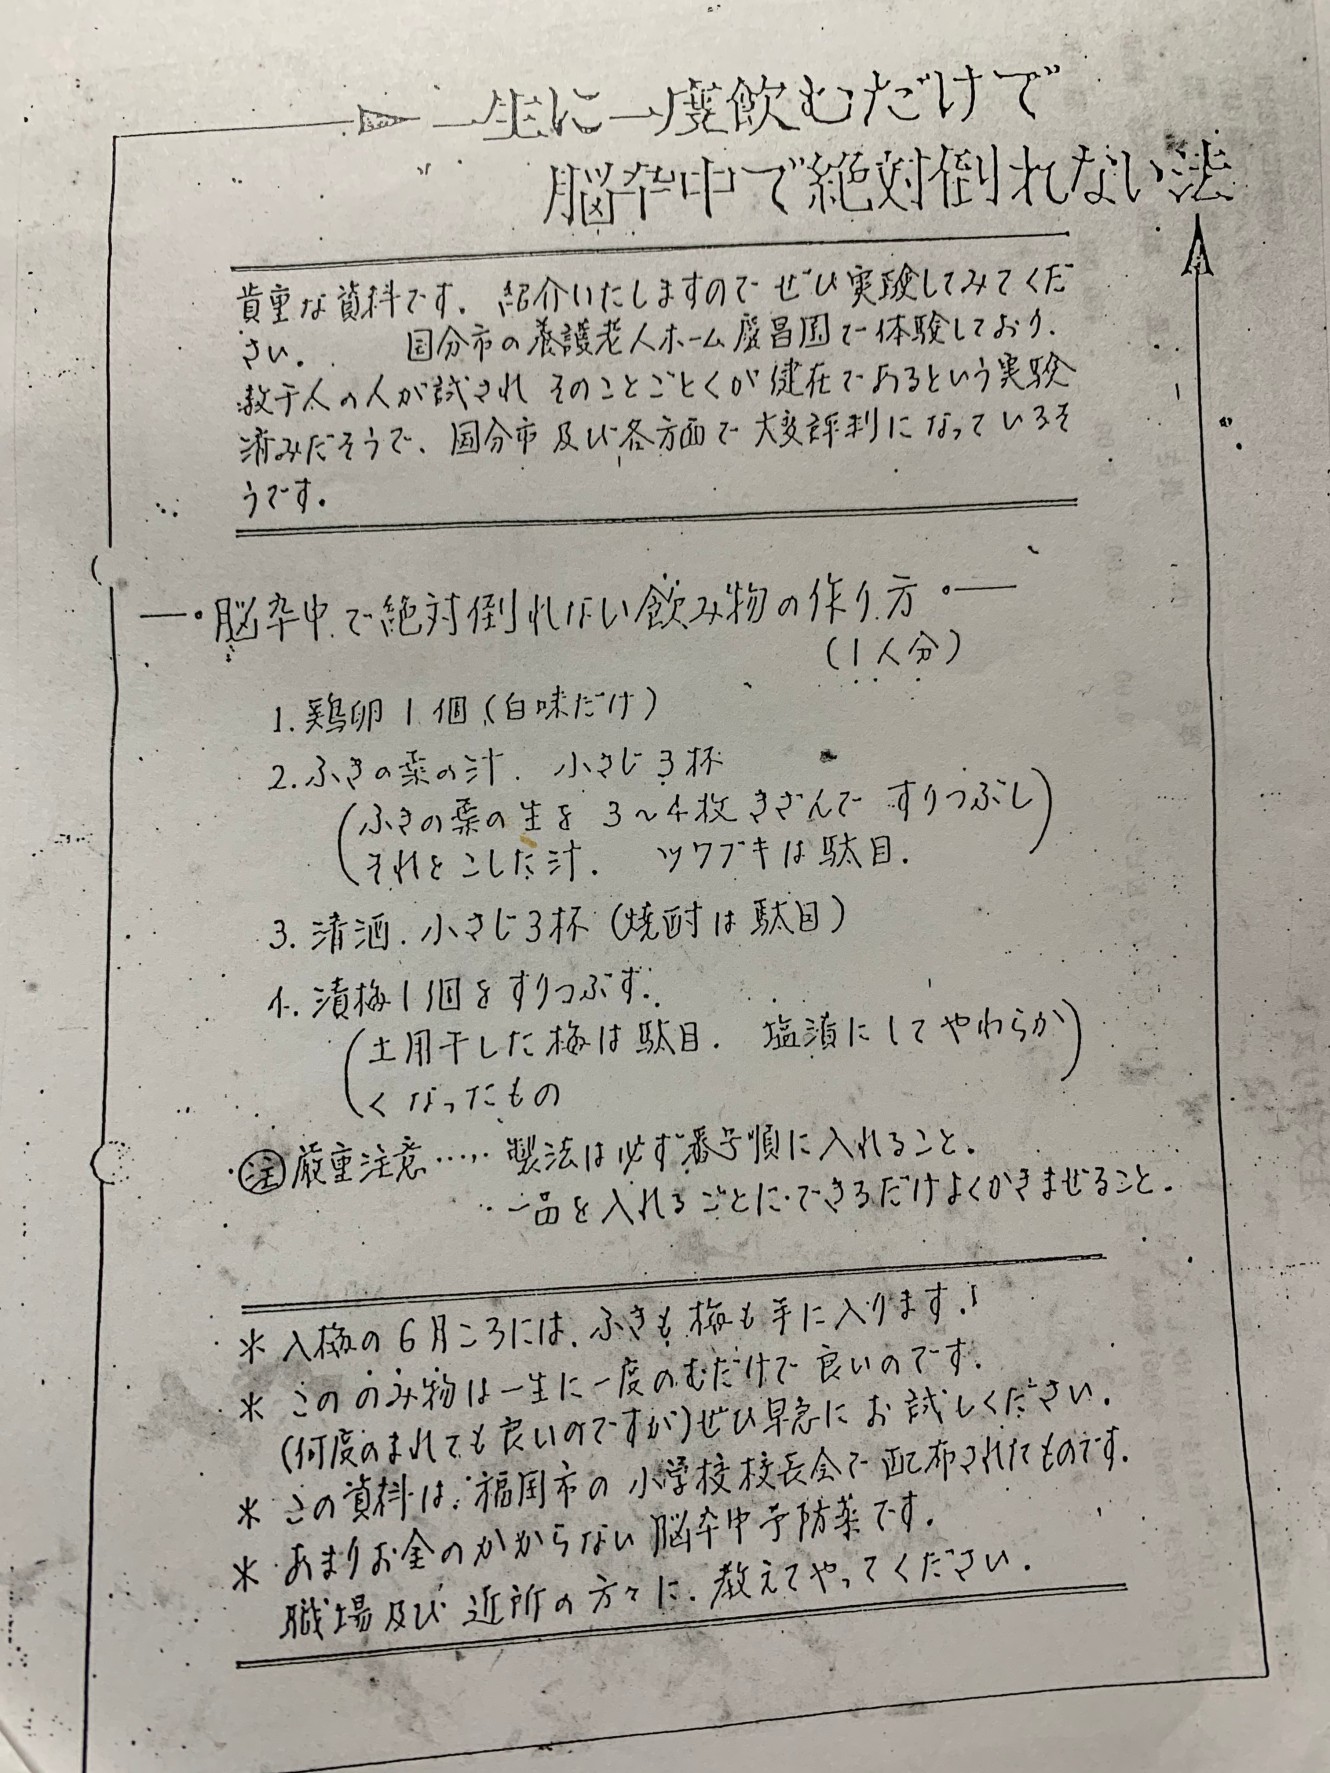 一生に一度飲むだけで
脳卒中で絶対倒れない法
貴重な資料です. 紹介いたしますので ぜひ 実験してみてくだ
さい. 国分市の養護老人ホーム慶昌園で体験しており.
数千人の人が試され そのことごとくが健在であるという実験
済みだそうで、国分市及び各方面で大変評判になっているそ
うです.
脳卒中で絶対倒れない飲み物の作り方
(1人分)
1. 鶏卵1個 (白味だけ)
2. ふきの葉の汁. 小さじ3杯
(ふきの葉の生を 3〜4枚きざんで すりつぶし
それをこした汁. ツワブキは駄目.)
3. 清酒. 小さじ3杯 (焼酎は駄目)
4. 漬梅1個をすりつぶす.
(土用干した梅は駄目. 塩漬にしてやわらか
くなったもの)
㊟厳重注意…… 製法は必ず番号順に入れること.
一品を入れるごとに・できるだけよくかきませること.
* 入梅の6月ころには、ふきも梅も手に入ります.
* この のみ物は一生に一度のむだけで良いのです.
(何度のまれても良いのですが)ぜひ早急にお試しください.
* この資料は、福岡市の小学校校長会で配布されたものです.
* あまりお金のかからない脳卒中予防薬です.
職場及び近所の方々に、教えてやってください.